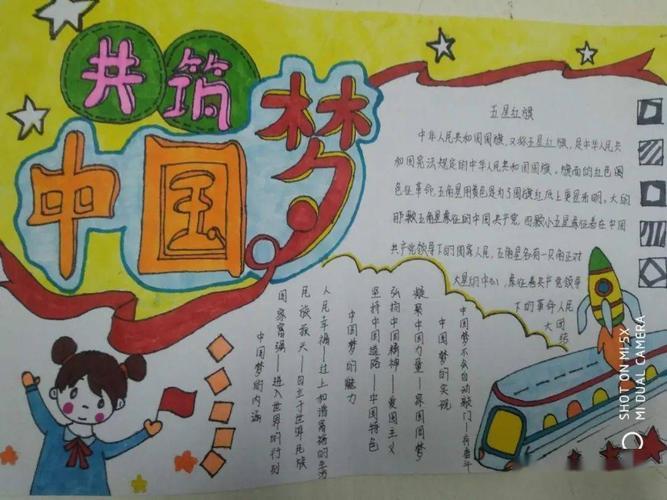 共筑
中国梦
五星红旗
中华人民共和国国旗,又称五星红旗,是中华人民共
和国宪法规定的中华人民共和国国旗。旗面的红色
色征革命,五角星用黄色是为了在红地上更显
那颗五角星象征的中国共产党,四颗小五星象征着在中国
共产党领导下的国家人民,五角星各有一只角正对
大星的中心,象征着共产党领导
下的革命人民
大团
结
中国梦的内涵
国家富强——进入世界前行列
民族振兴——自立于世界民族
人民幸福——过上和谐富裕的生活
中国梦的魅力
坚持中国道路——中国特色
弘扬中国精神——爱国主义
凝聚中国力量——家国同梦
中国梦的实现
中国梦不会自动敲门——共奋斗
SHOT ON MI 5X
MI DUAL CAMERA